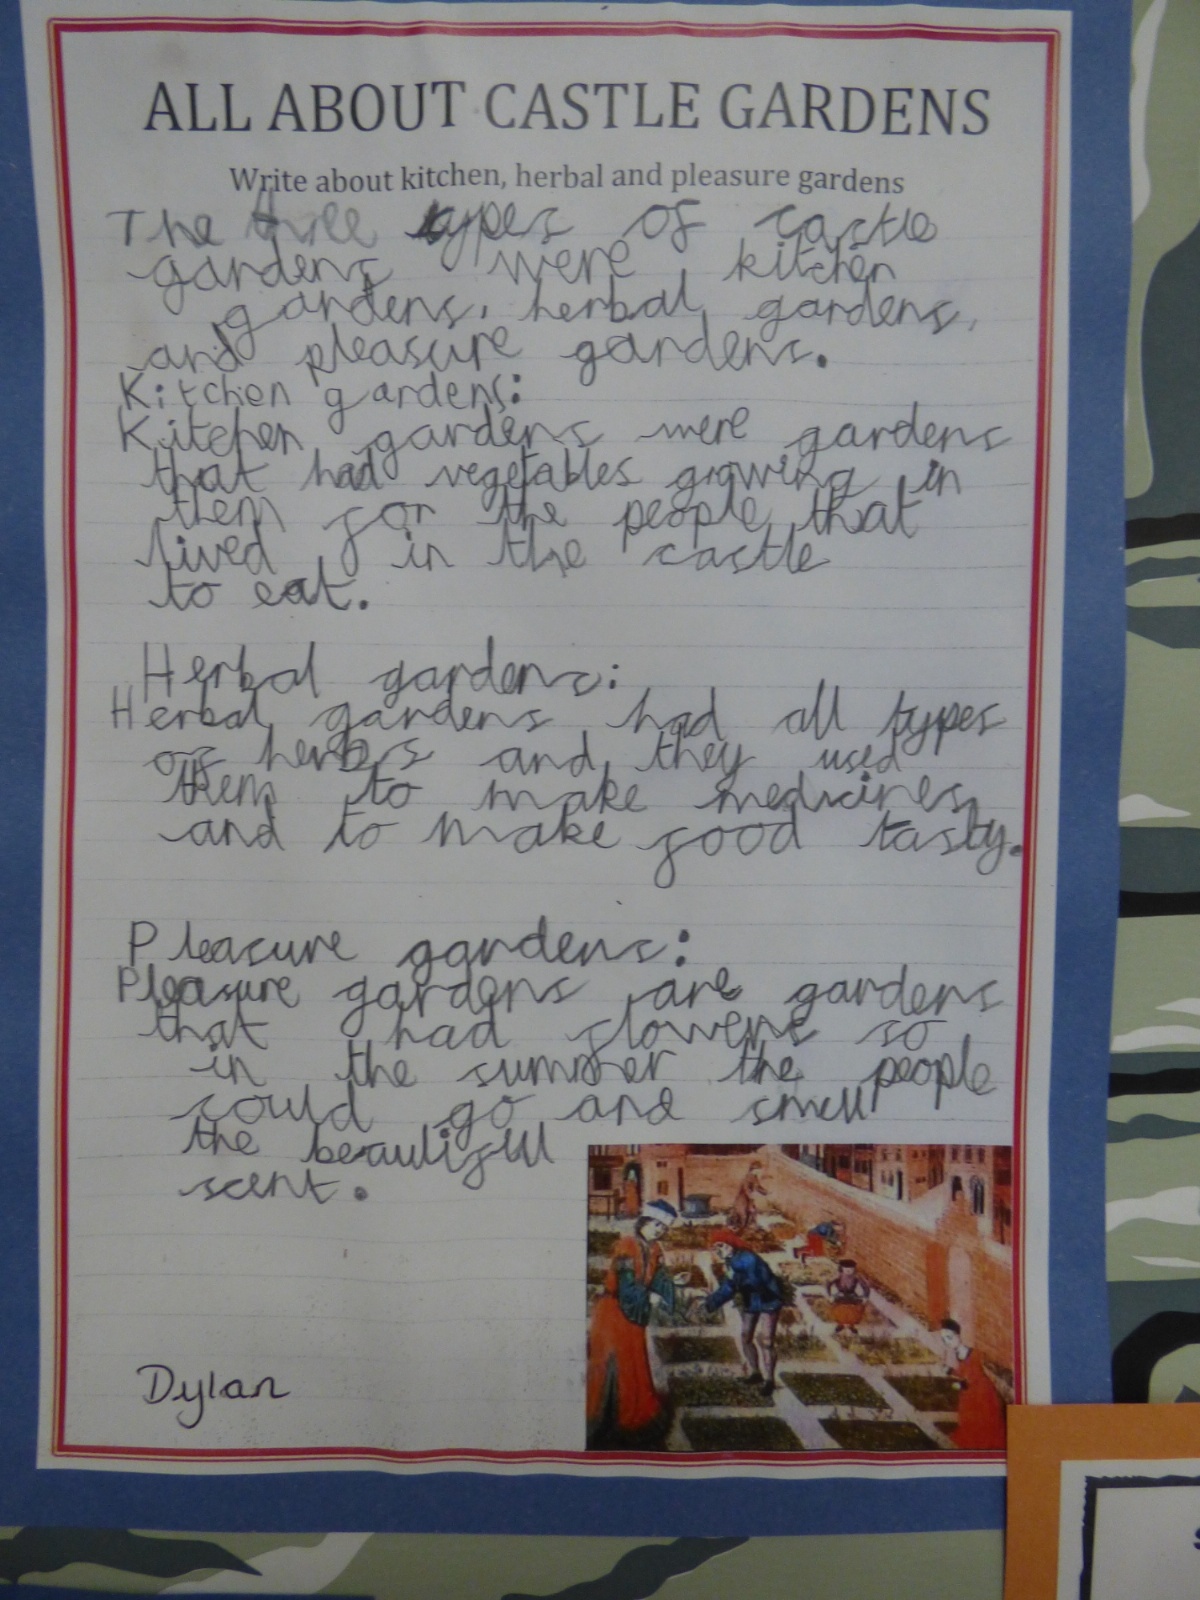 ALL ABOUT CASTLE GARDENS
Write about kitchen, herbal and pleasure gardens
The three types of castle
gardens were kitchen
gardens, herbal gardens,
and pleasure gardens.
Kitchen gardens:
Kitchen gardens were gardens
that had vegetables growing in
them for the people that
lived in the castle
to eat.
Herbal gardens:
Herbal gardens had all types
of herbs and they used
them to make medicines
and to make food tasty.
Pleasure gardens:
Pleasure gardens are gardens
that had flowers so
in the summer the people
could go and smell
the beautiful
scent.
Dylan